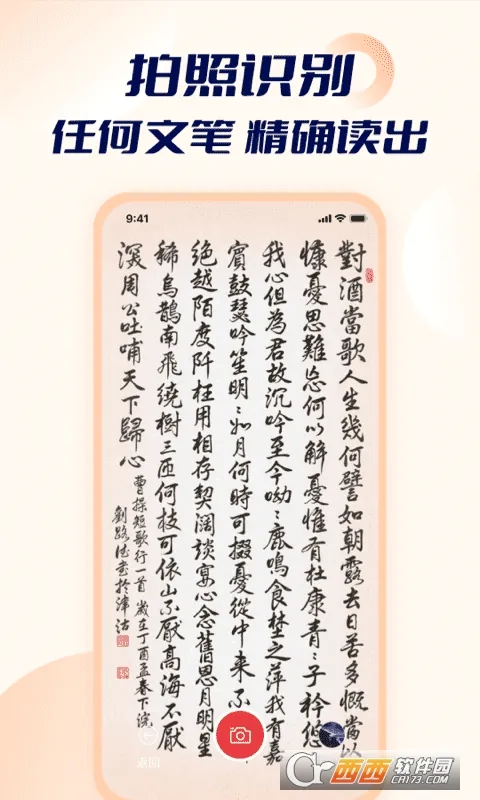 拍照识别
任何文笔 精确读出
9:41
對酒當歌人生幾何譬如朝露去日苦多慨當以
慷憂思難忘何以解憂惟有杜康青〻子衿悠
我心但為君故沉吟至今呦〻鹿鳴食埜之萍我有嘉
賓鼓瑟吹笙明〻如月何時可掇憂從中來不
絕越陌度阡枉用相存契闊談宴心念舊恩月明星
稀烏鵲南飛繞樹三匝何枝可依山不厭高海不厭
深周公吐哺天下歸心
曹操短歌行一首 歲在丁酉孟春下浣
劉路書於津沽
返回
西西软件园
CR173.COM